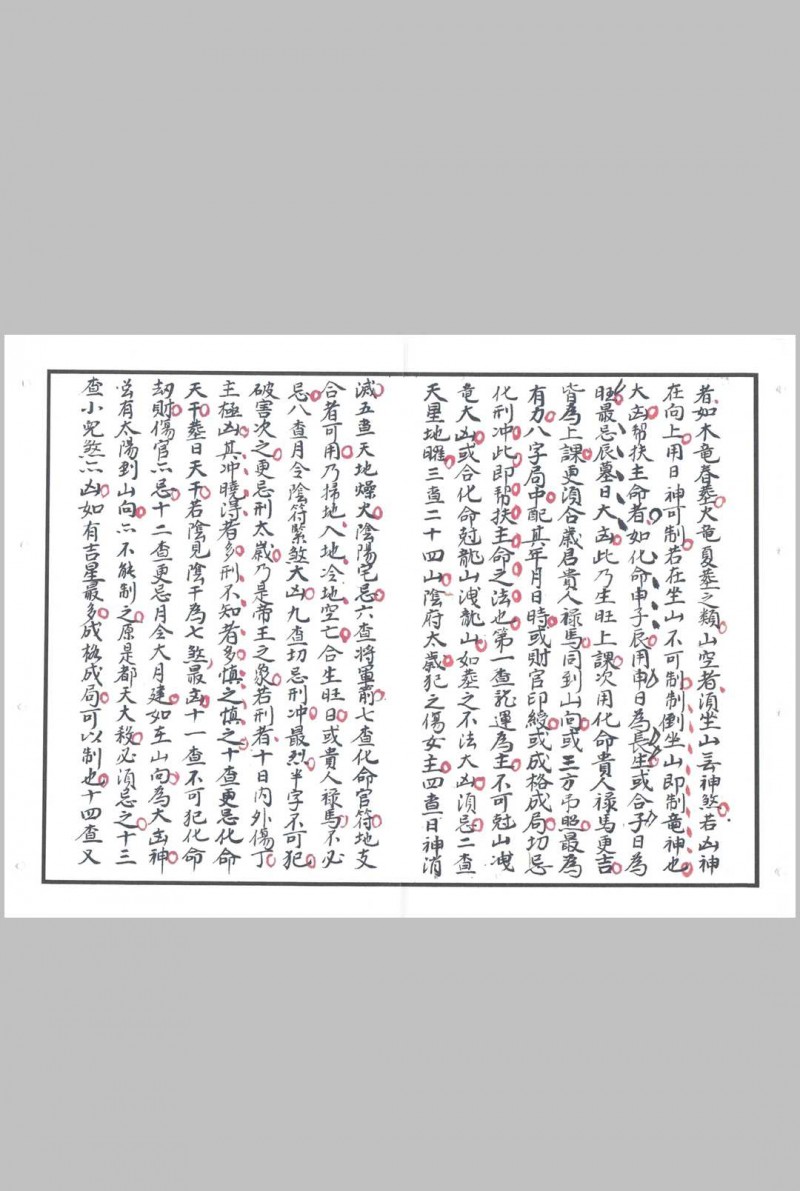 者如木竜春塟火竜夏塟之類山空者湏坐山無神煞若凶神
在向上用日神可制若在坐山不可制制倒坐山即制竜神也
大凶帮扶主命者如化命申子辰用申日為長生或合子日為
旺最忌辰墓日大凶此乃生旺上課次用化命貴人禄馬更吉
皆為上課更湏合歲君貴人禄馬同到山向或三方弔照最為
有力八字局中配其年月日時或財官印綬或成格成局切忌
化刑冲此即帮扶主命之法也第一查龍運為主不可尅山洩
竜大凶或合化命尅龍山洩龍山如塟之不法大凶湏忌二查
天星地曜三查二十四山陰府太歲犯之傷女主四查日神消
滅五查天地燥火陰陽宅忌六查將軍前七查化命官符地支
合者可用乃掃地入地冷地空亡合生旺日或貴人禄馬不必
忌八查月令陰符緊煞大凶九查切忌刑冲最烈半字不可犯
破害次之更忌刑太歲乃是帝王之象若刑者十日內外傷丁
主極凶其冲曉淂者多刑不知者多慎之慎之十查更忌化命
天干塟日天干若陰見陰干為七煞最凶十一查不可犯化命
刼財傷官亦忌十二查更忌月令大月建如在山向為大凶神
當有太陽到山向亦不能制之原是都天大殺必湏忌之十三
查小兒煞亦凶如有吉星最多成格成局可以制也十四查又